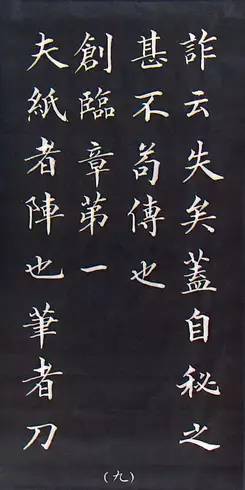 詐云失矣蓋自秘之
甚不苟傳也
創臨章第一
夫紙者陣也筆者刀
（九）